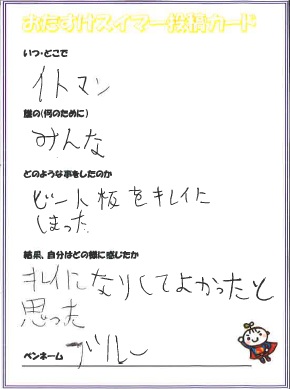 おたすけスイマー投稿カード
いつ・どこで
イトマン
誰の(何のために)
みんな
どのような事をしたのか
ビート板をキレイに
しまった
結果、自分はどの様に感じたか
キレイになりしてよかったと
思った
ペンネーム ブルー